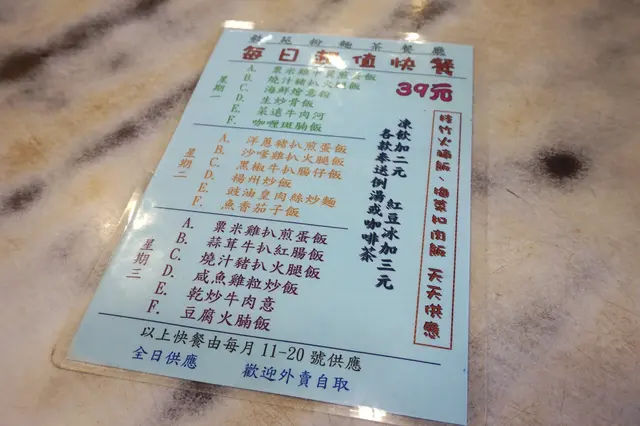 粉麵茶餐廳
每日超值快餐
39元
星期一
A. 粟米雞扒煎蛋飯
B. 燒汁豬扒火腿飯
C. 海鮮燴意粉
D. 生炒骨飯
E. 菜遠牛肉河
F. 咖喱斑腩飯
星期二
A. 洋蔥豬扒煎蛋飯
B. 沙嗲雞扒火腿飯
C. 黑椒牛扒腸仔飯
D. 楊州炒飯
E. 豉油皇肉絲炒麵
F. 魚香茄子飯
星期三
A. 粟米雞扒煎蛋飯
B. 蒜茸牛扒紅腸飯
C. 燒汁豬扒火腿飯
D. 咸魚雞粒炒飯
E. 乾炒牛肉意
F. 豆腐火腩飯
凍飲加二元 紅豆冰加三元
各款奉送例湯或咖啡茶
枝竹火腩飯、梅菜扣肉飯 天天供應
以上快餐由每月11-20號供應
全日供應 歡迎外賣自取